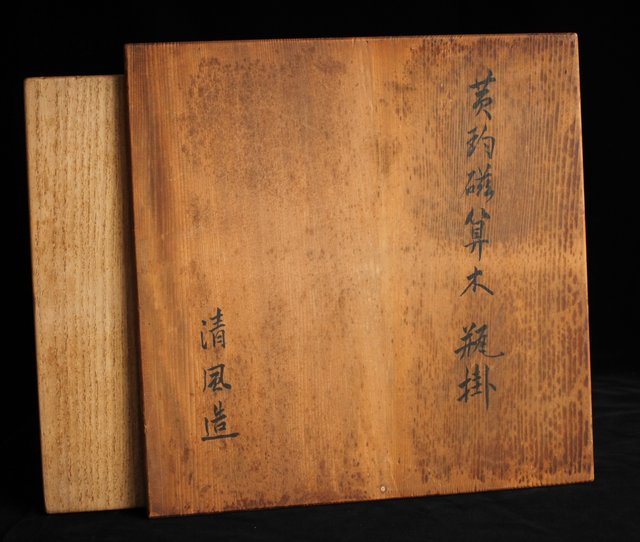 黄鈞磁算木瓶掛
清風造